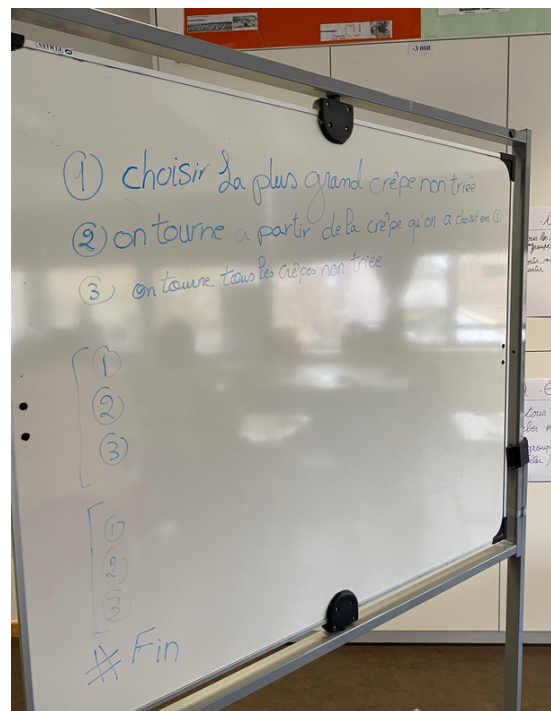 -3 000
① choisir la plus grand crêpe non triée
② on tourne a partir de la crêpe qu'on a choisit en ①
③ on tourne tous les crêpes non triée
①
②
③
①
②
③
# Fin